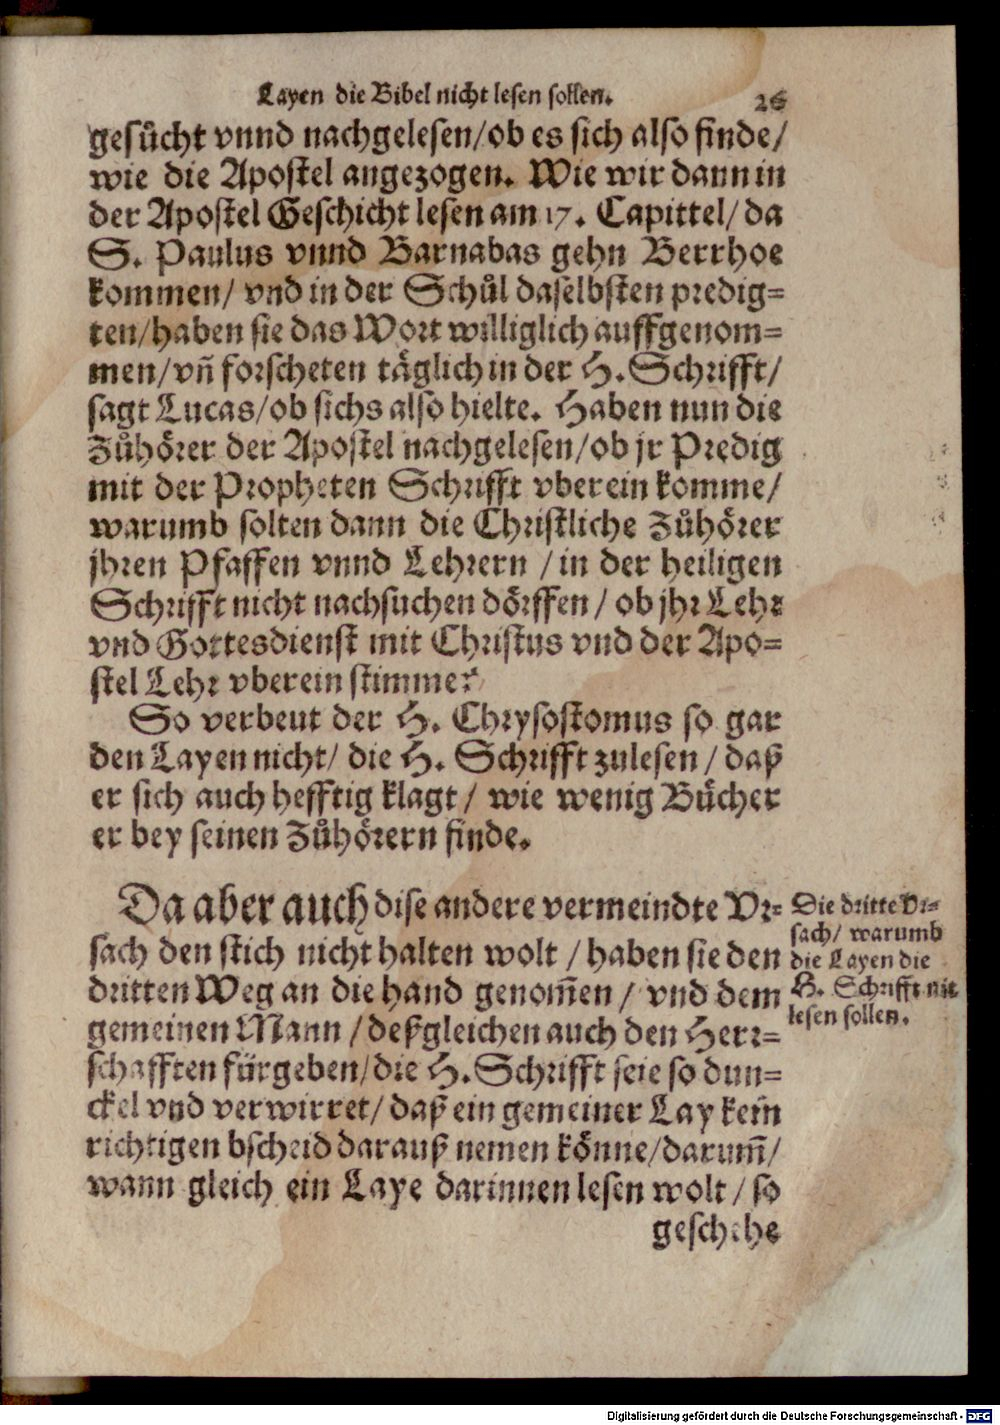 Layen die Bibel nicht lesen sollen. 26
gesücht vnnd nachgelesen/ob es sich also finde/
wie die Apostel angezogen. Wie wir dann in
der Apostel Geschicht lesen am 17. Capittel/ da
S. Paulus vnnd Barnabas gehn Berrhoe
kommen/ vnd in der Schůl daselbsten predig=
ten/haben sie das Wort williglich auffgenom=
men/vn̄ forscheten täglich in der H. Schrifft/
sagt Lucas/ob sichs also hielte. Haben nun die
Zůhörer der Apostel nachgelesen/ob jr Predig
mit der Propheten Schrifft vberein komme/
warumb solten dann die Christliche Zůhörer
jhren Pfaffen vnnd Lehrern /in der heiligen
Schrifft nicht nachsuchen dörffen/ ob jhr Lehr
vnd Gottesdienst mit Christus vnd der Apo=
stel Lehr vberein stimme?
So verbeut der H. Chrysostomus so gar
den Layen nicht/ die H. Schrifft zulesen / daß
er sich auch hefftig klagt/ wie wenig Bücher
er bey seinen Zůhörern finde.
Da aber auch dise andere vermeindte Vr=
sach den stich nicht halten wolt / haben sie den
dritten Weg an die hand genom̄en / vnd dem
gemeinen Mann /deßgleichen auch den Herr=
schafften fürgeben/die H. Schrifft seie so dun=
ckel vnd verwirret/ daß ein gemeiner Lay kein̄
richtigen bscheid darauß nemen könne/darum̄/
wann gleich ein Laye darinnen lesen wolt / so
geschehe
Die dritte Vr=
sach/ warumb
die Layen die
H. Schrifft nit
lesen sollen.
Digitalisierung gefördert durch die Deutsche Forschungsgemeinschaft - DFG